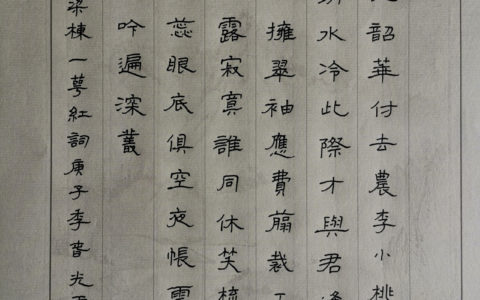 韶華付去農李小桃
水冷此際才與君
擁翠袖應費翦裁
露寂寞誰同休笑梳
蕊眼底俱空夜帳
吟遍深叢
梁棟一萼紅詞庚子李光